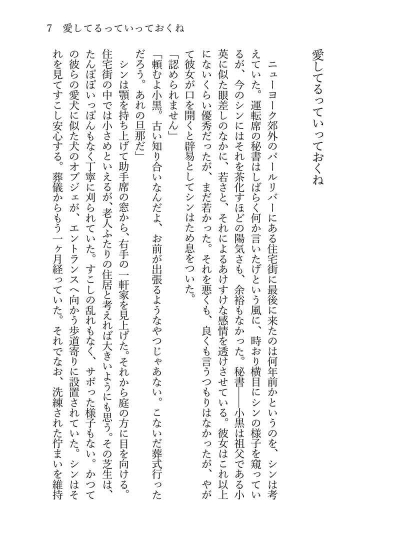 7　愛してるっていっておくね
愛してるっていっておくね
　ニューヨーク郊外のパールリバーにある住宅街に最後に来たのは何年前かというのを、シンは考
えていた。運転席の秘書はしばらく何か言いたげという風に、時おり横目にシンの様子を窺ってい
るが、今のシンにはそれを茶化すほどの陽気さも、余裕もなかった。秘書――小黒は祖父である小
英に似た眼差しのなかに、若さと、それによるあけすけな感情を透けさせている。彼女はこれ以上
にないくらい優秀だったが、まだ若かった。それを悪くも、良くも言うつもりはなかったが、やが
て彼女が口を開くと辟易としてシンはため息をついた。
「認められません」
「頼むよ小黒。古い知り合いなんだよ、お前が出張るようなやつじゃあない。こないだ葬式行った
だろう。あれの旦那だ」
　シンは顎を持ち上げて助手席の窓から、右手の一軒家を見上げた。それから庭の方に目を向ける。
住宅街の中では小さめといえるが、老人ふたりの住居と考えれば大きいようにも思う。その芝生は、
たんぽぽいっぽんもなく丁寧に刈られていた。すこしの乱れもなく、サボった様子もない。かつて
の彼らの愛犬に似た犬のオブジェが、エントランスへ向かう歩道寄りに設置されていた。シンはそ
れを見てすこし安心する。葬儀からもう一ヶ月経っていた。それでなお、洗練された佇まいを維持